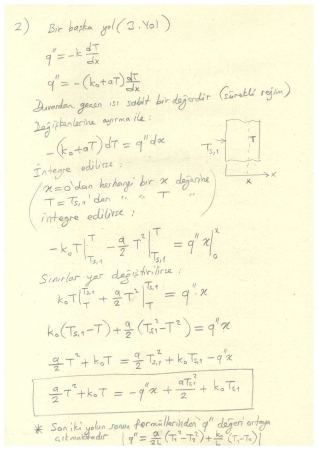 2) Bir başka yol (3. Yol)
q" = -k dT/dx
q" = -(k₀+aT) dT/dx
Duvardan geçen ısı sabit bir değerdir (sürekli rejim)
Değişkenlerine ayırma ile:
-(k₀+aT)dT = q"dx
T
Ts,1
x
x
İntegre edilirse:
(x=0'dan herhangi bir x değerine
T=Ts,1'dan " " T "
integre edilirse;)
-k₀T|_{Ts,1}^{T} - a/2 T²|_{Ts,1}^{T} = q" x|_{0}^{x}
Sınırlar yer değiştirilirse:
k₀T|_{T}^{Ts,1} + a/2 T²|_{T}^{Ts,1} = q" x
k₀(Ts,1-T) + a/2 (Ts,1²-T²) = q" x
a/2 T² + k₀T = a/2 Ts,1² + k₀Ts,1 - q"x
a/2 T² + k₀T = -q"x + aTs,1²/2 + k₀Ts,1
* Son iki yolun sonu formüllerinden q" değeri ortaya
çıkmaktadır | q" = a/2L (T₁²-T₂²) + k₀/L (T₁-T₂) |